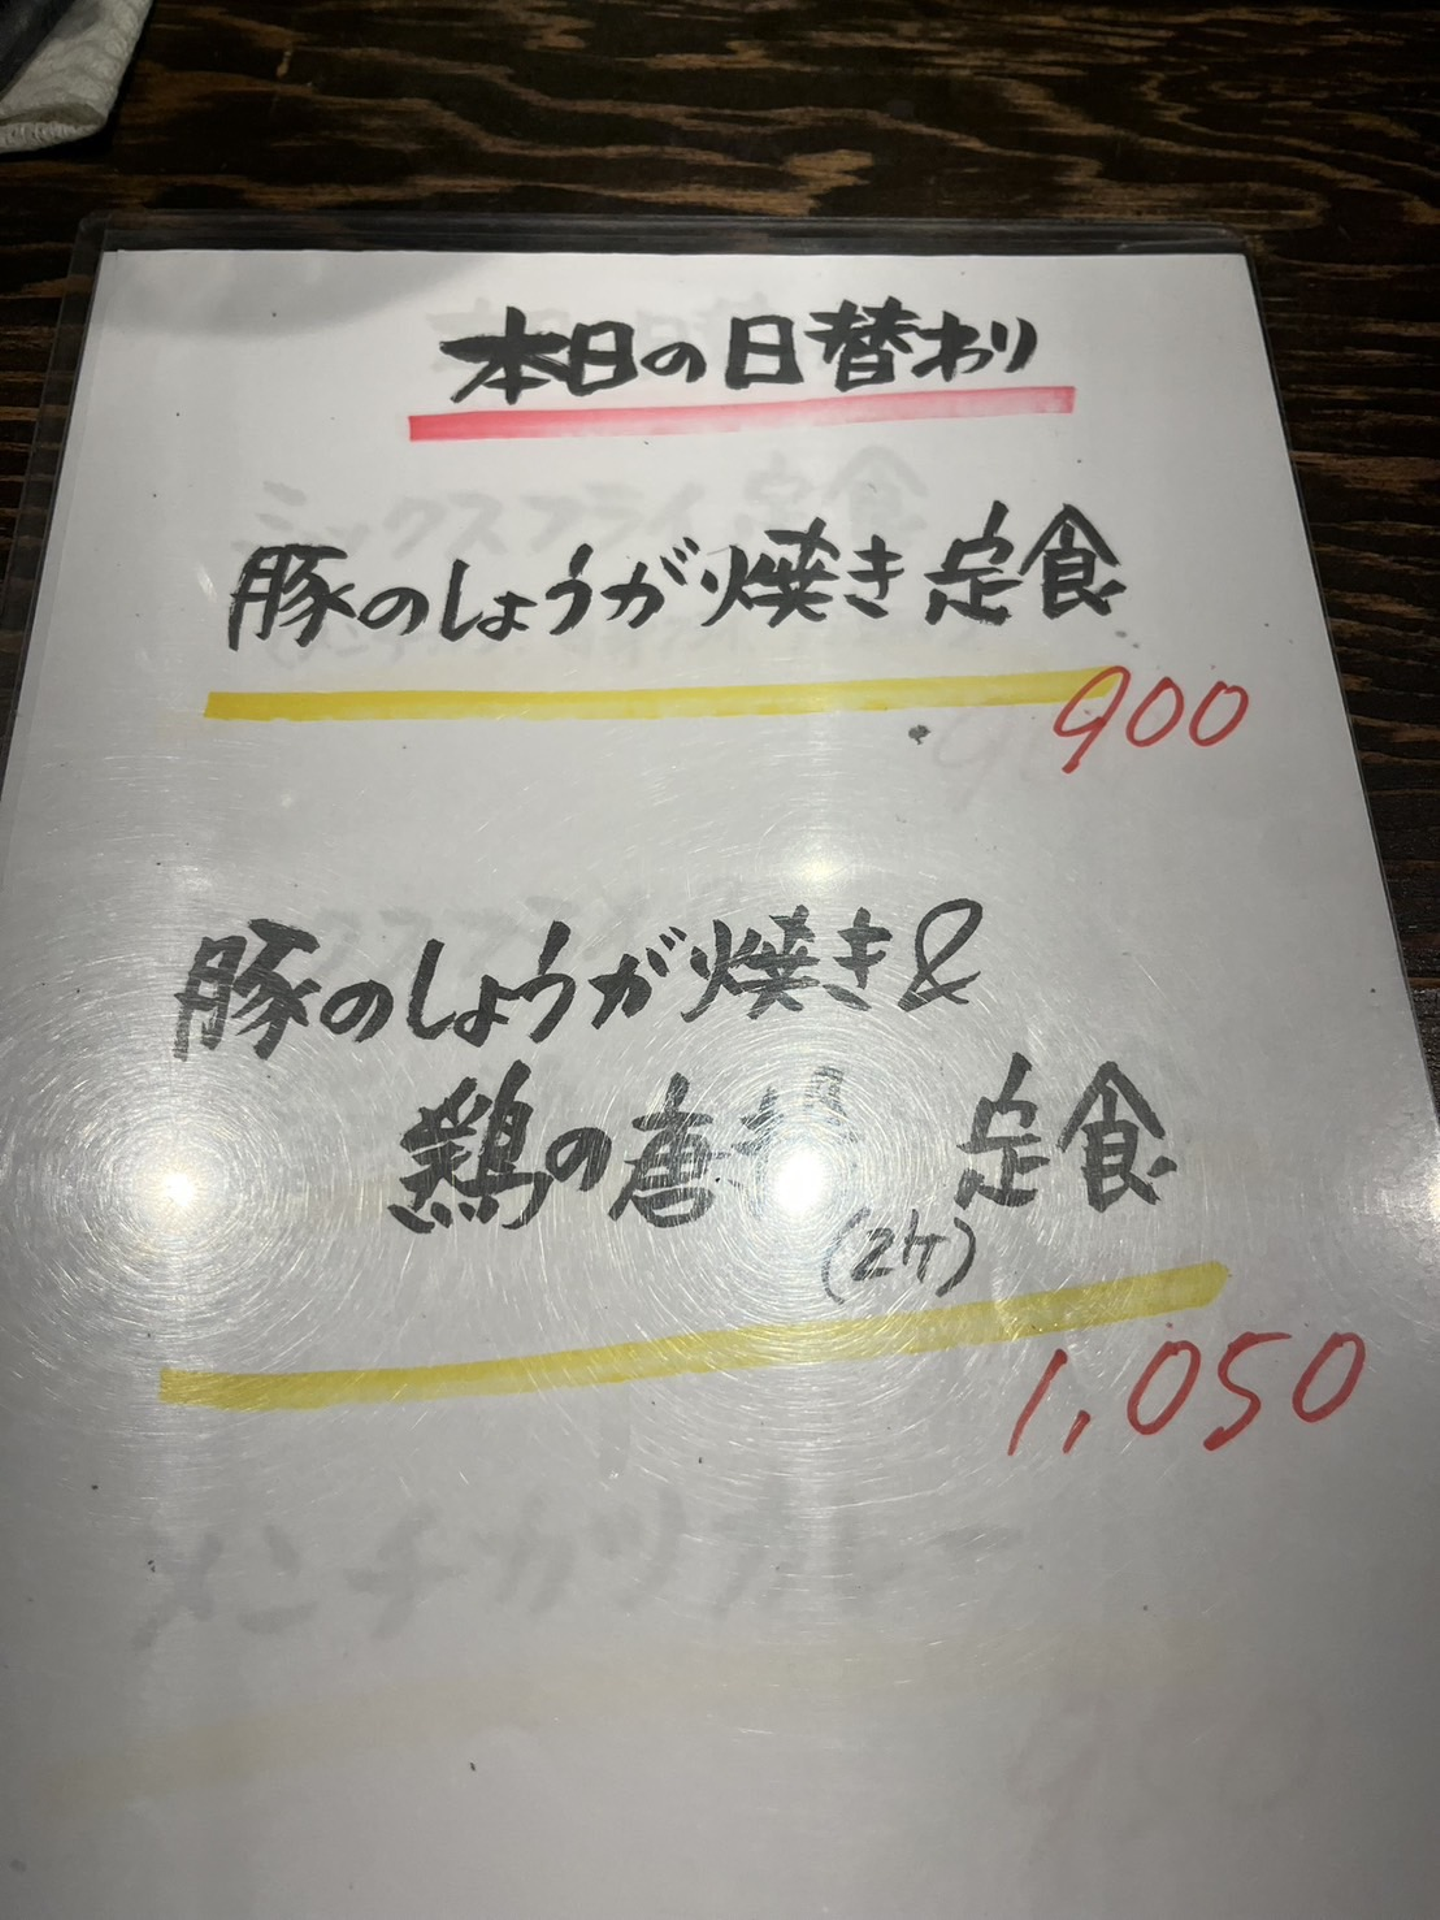 本日の日替わり
豚のしょうが焼き定食
900
豚のしょうが焼き&
鶏の唐揚 定食
(2ケ)
1,050